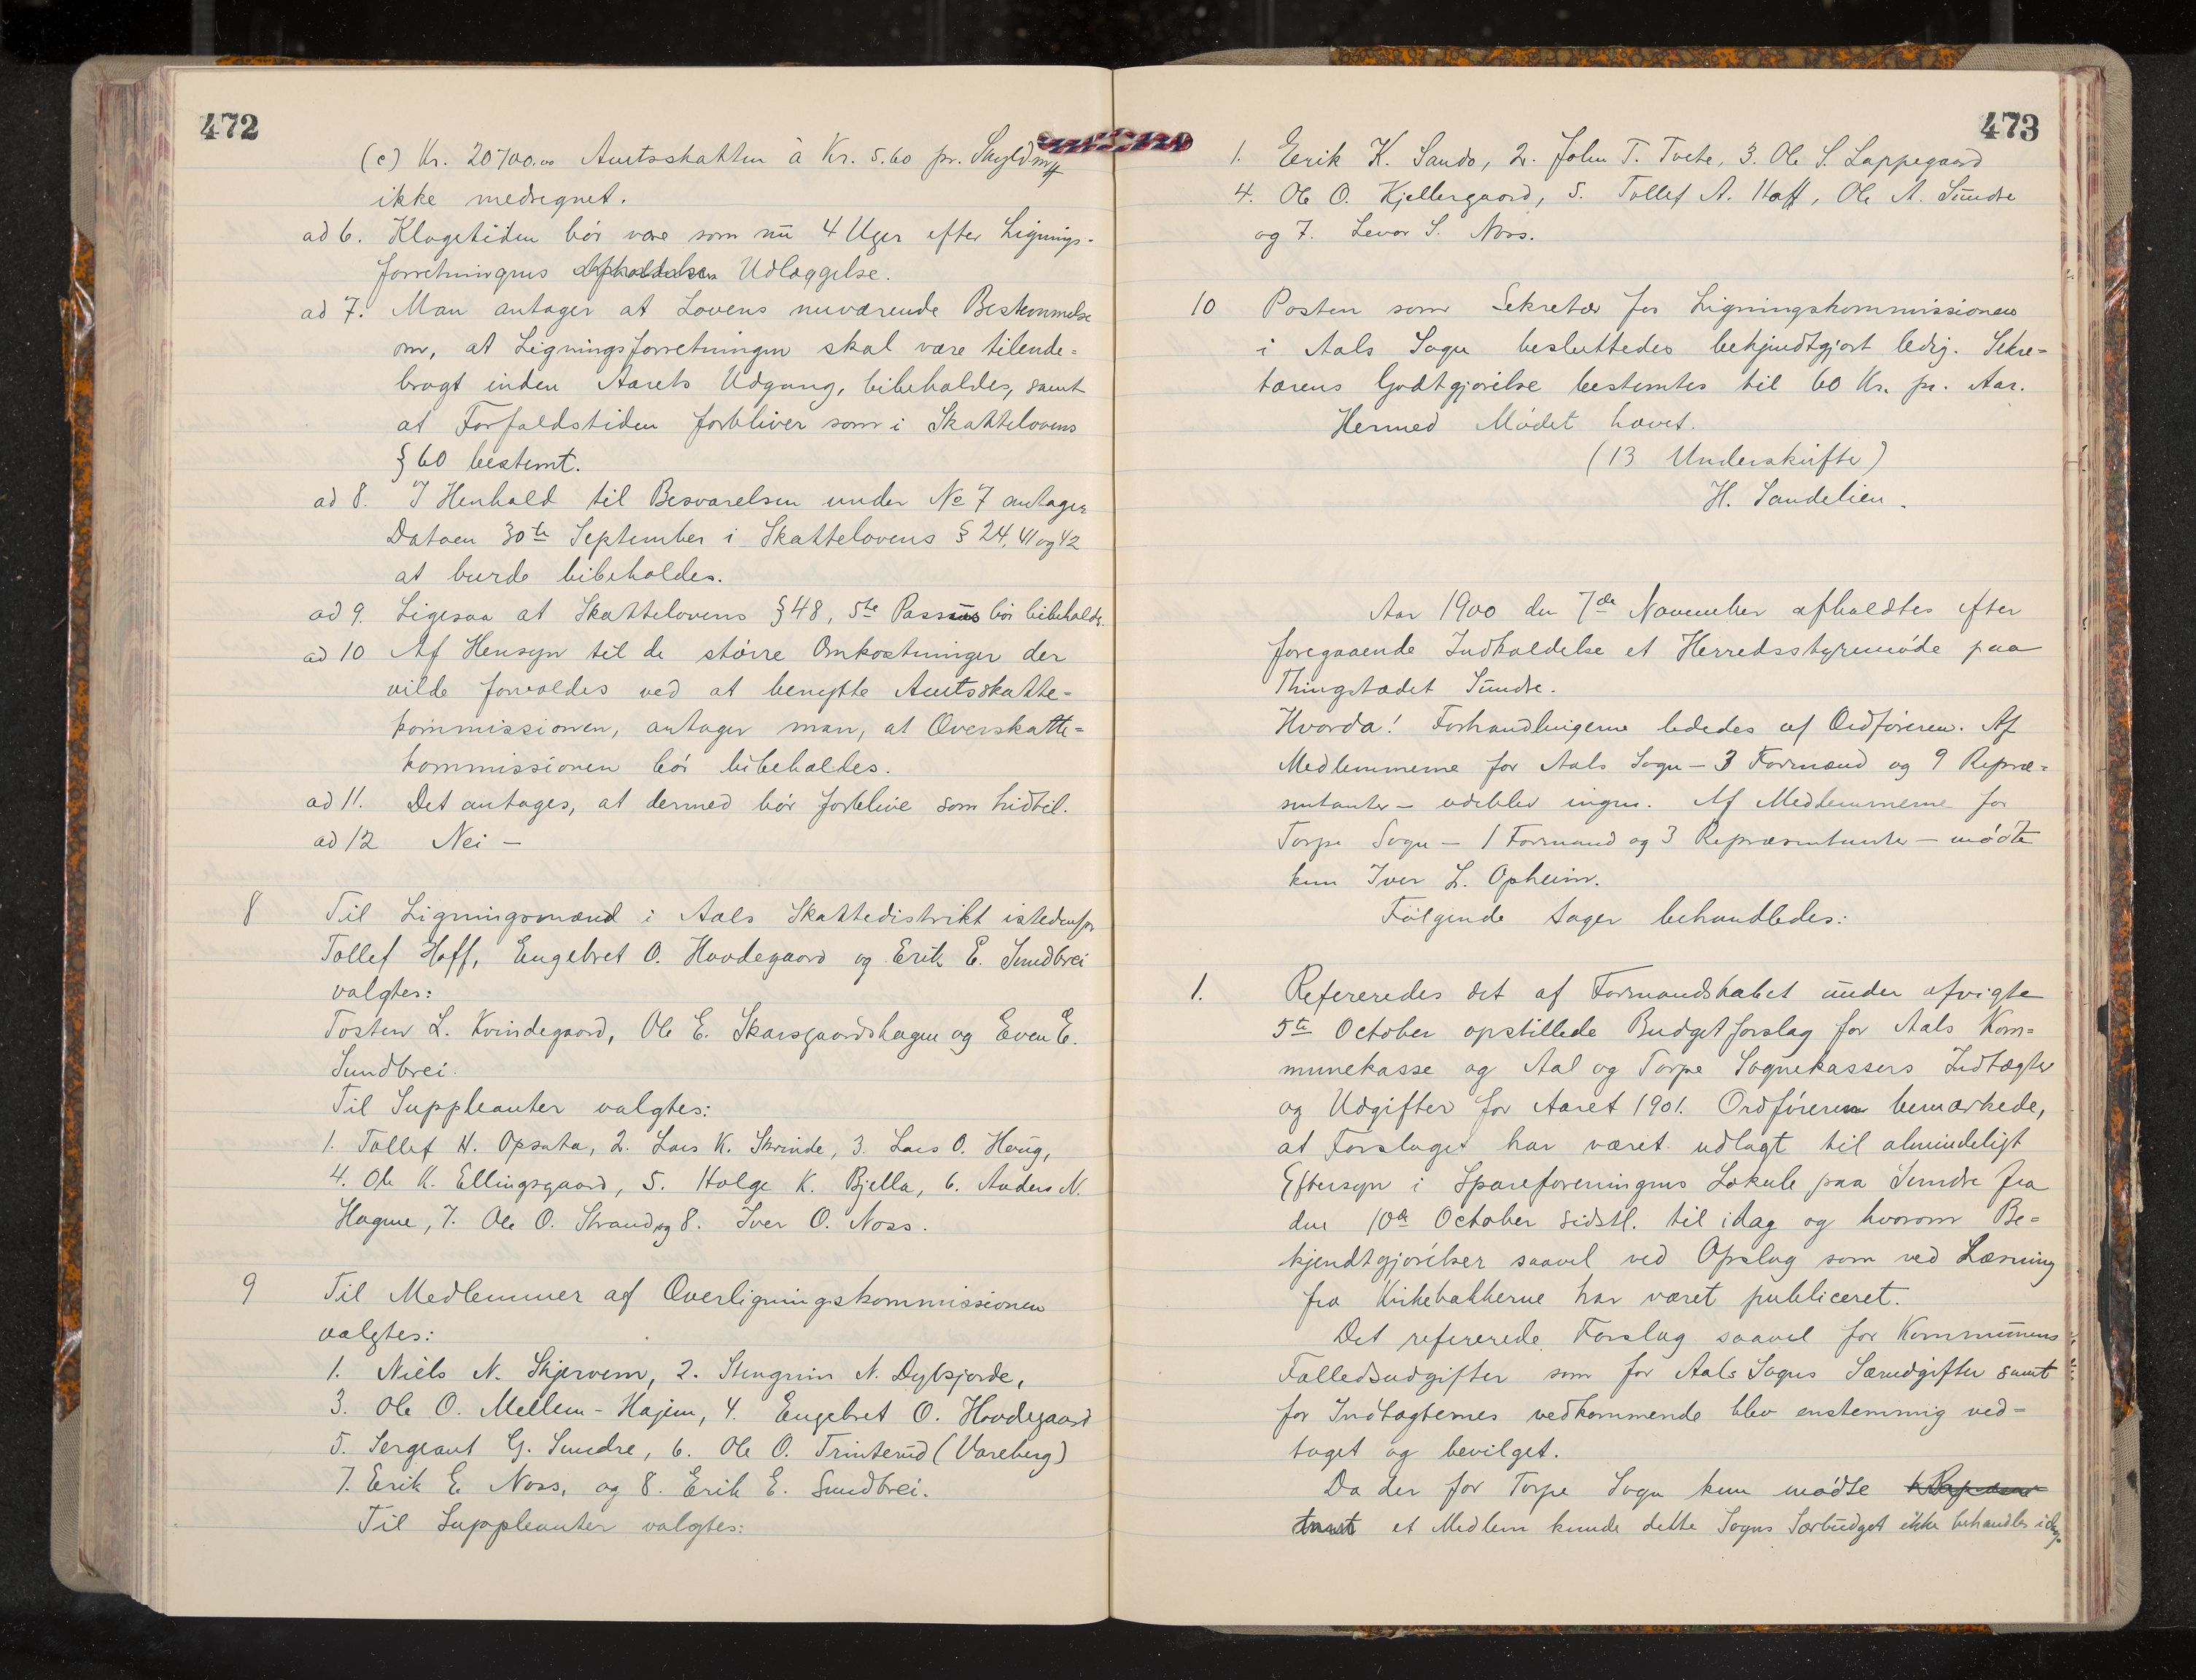 472
(c) Kr. 20700.00 Amtsskatten à Kr. 5.60 pr. Skyldmk
ikke medregnet.
ad 6. Klagetiden bör være som nu 4 Uger efter Lignings-
forretningens Udlæggelse.
ad 7. Man antager at Lovens nuværende Bestemmelse
om, at Ligningsforretningen skal være tilende=
bragt inden Aarets Udgang, bibeholdes, samt
at Forfaldstiden forbliver som i Skattelovens
§ 60 bestemt.
ad 8. I Henhold til Besvarelsen under No 7 antages
Datoen 30te September i Skattelovens § 24, 41 og 42
at burde bibeholdes.
ad 9. Ligesaa at Skattelovens § 48, 5te Passus bör bibeholdes.
ad 10 Af Hensyn til de större Omkostninger der
vilde forvoldes ved at benytte Amtsskatte=
kommissionen, antager man, at Overskatte=
kommissionen bör bibeholdes.
ad 11. Det antages, at dermed bör forblive som hidtil.
ad 12 Nei -
8 Til Ligningsmænd i Aals Skattedistrikt istedenfor
Tollef Hoff, Engebret O. Hovdegaard og Erik E. Sundbrei
valgtes:
Tosten L. Kvindegaard, Ole E. Skarsgaardshagen og Even E.
Sundbrei.
Til Suppleanter valgtes:
1. Tollef H. Opsata, 2. Lars K. Skrinde, 3. Lars O. Haug,
4. Ole K. Ellingsgaard, 5. Holge K. Bjella, 6. Anders N.
Hagene, 7. Ole O. Strand og 8. Iver O. Noss.
9 Til Medlemmer af Overligningskommissionen
valgtes:
1. Niels N. Skjervem, 2. Stengrim N. Dybsjorde,
3. Ole O. Mellem-Hajem, 4. Engebret O. Hovdegaard
5. Sergeant G. Sundre, 6. Ole O. Trinterud (Vareberg)
7. Erik E. Noss, og 8. Erik E. Sundbrei.
Til Suppleanter valgtes:
473
1. Eerik K. Sando, 2. John T. Tvete, 3. Ole S. Lappegaard
4. Ole O. Kjellergaard, 5. Tollef A. Hoff, Ole A. Sundre
og 7. Levor S. Noss.
10 Posten som Sekretær for Ligningskommissionen
i Aals Sogn besluttedes bekjendtgjort ledig. Sekre=
tærens Godtgjörelse bestemtes til 60 Kr. pr. Aar.
Hermed Mödet hævet.
(13 Underskrifter)
H. Sandelien.
Aar 1900 den 7de November afholdtes efter
foregaaende Indkaldelse et Herredsstyremöde paa
Thingstedet Sundre.
Hvorda! Forhandlingerne lededes af Ordföreren. Af
Medlemmerne for Aals Sogn - 3 Formænd og 9 Repræ=
sentanter - udeblev ingen. Af Medlemmerne for
Torpe Sogn - 1 Formand og 3 Repræsentanter - mödte
kun Iver L. Opheim.
Fölgende Sager behandledes:
1. Refereredes det af Formandskabet under afvigte
5te October opstillede Budgetforslag for Aals Kom=
munekasse og Aal og Torpe Sognekassers Indtægter
og Udgifter for Aaret 1901. Ordföreren bemærkede,
at Forslaget har været udlagt til almindeligt
Eftersyn i Spareforeningens Lokale paa Sundre fra
den 10de October sidstl. til idag og hvorom Be=
kjendtgjörelser saavel ved Opslag som ved Læsning
fra Kirkebakkerne har været publiceret.
Det refererede Forslag saavel for Kommunens
Fælledsudgifter som for Aals Sogns Særudgifter samt
for Indtægternes vedkommende blev enstemmig ved=
taget og bevilget.
Da der for Torpe Sogn kun mödte
et Medlem kunde dette Sogns Særbudget ikke behandles idag.